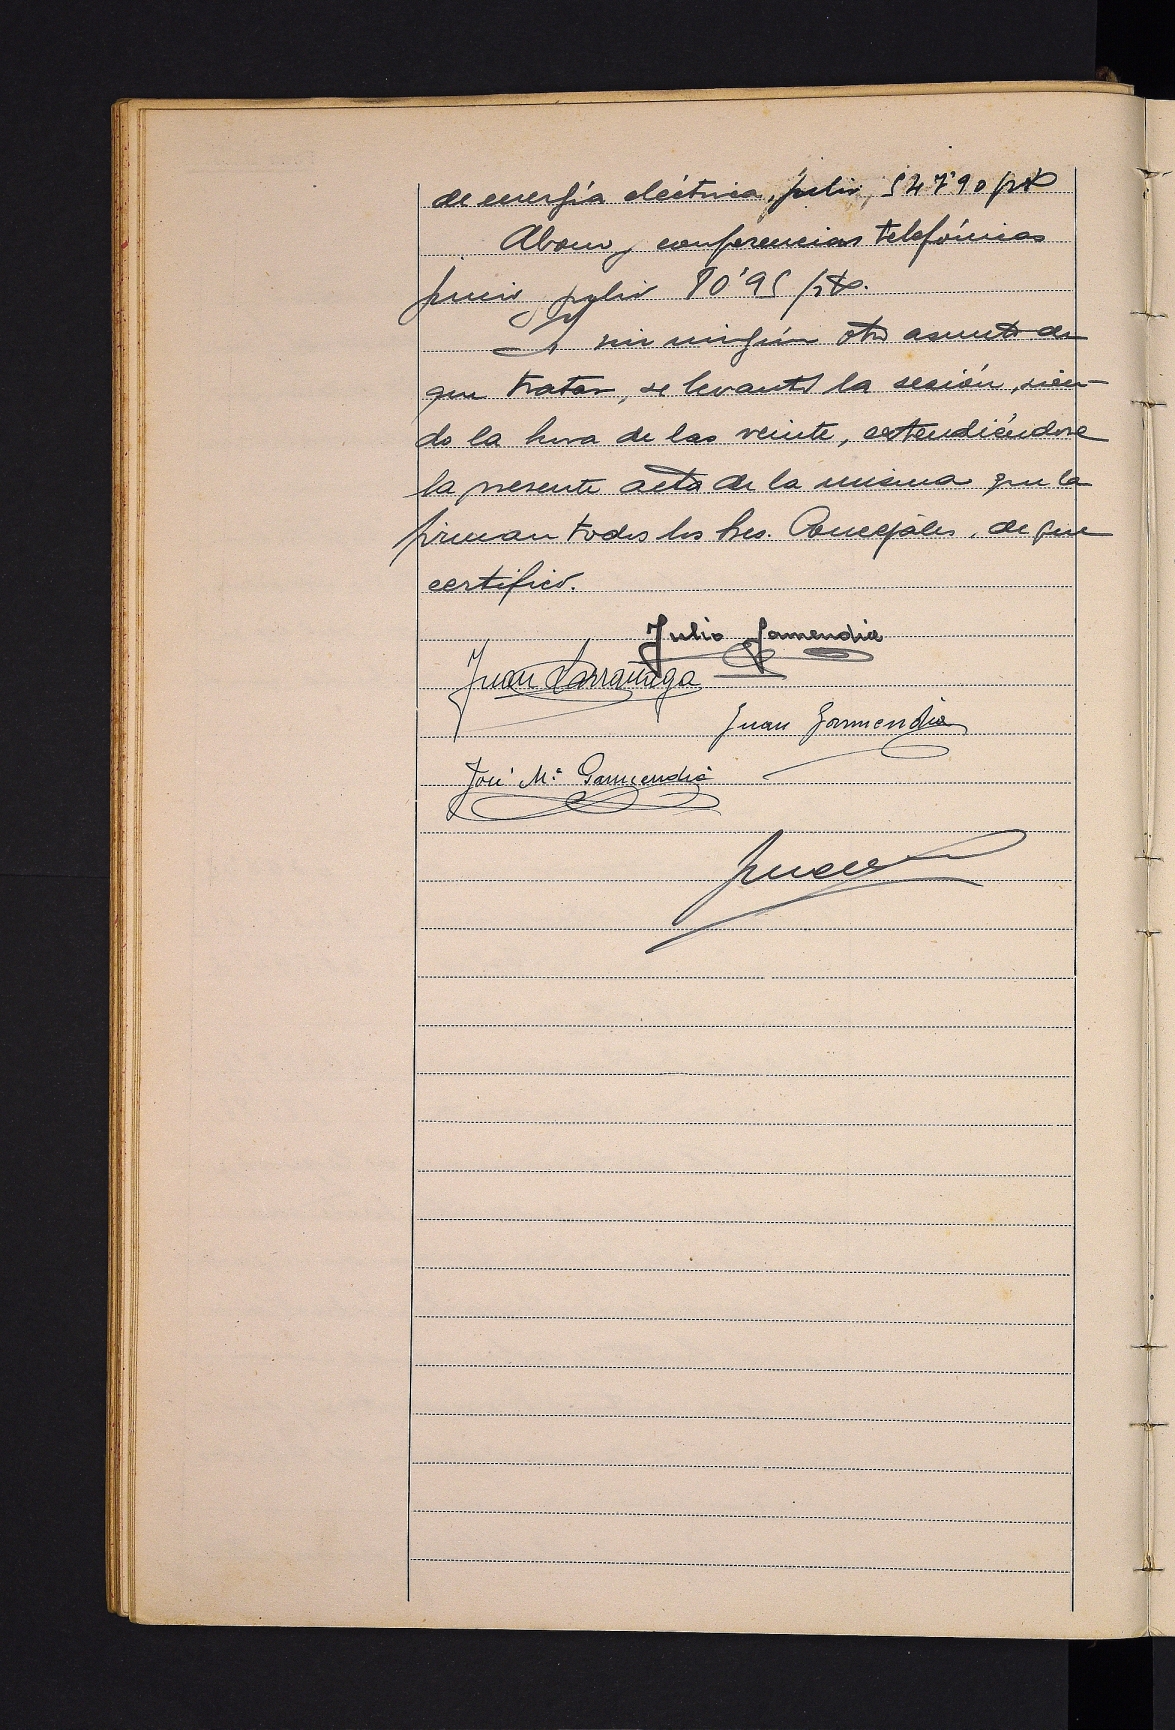 de energía eléctrica, julio, 547'90 pts
Abono y conferencias telefónicas
junio y julio 80'95 pts.
Y sin ningún otro asunto de
que tratar, se levantó la sesión, sien-
do la hora de las veinte, extendiéndose
la presente acta de la misma que la
firman todos los Sres. Concejales, de que
certifico.
Julio Garmendia
Juan Larrañaga
Juan Garmendia
José Mª Garmendia